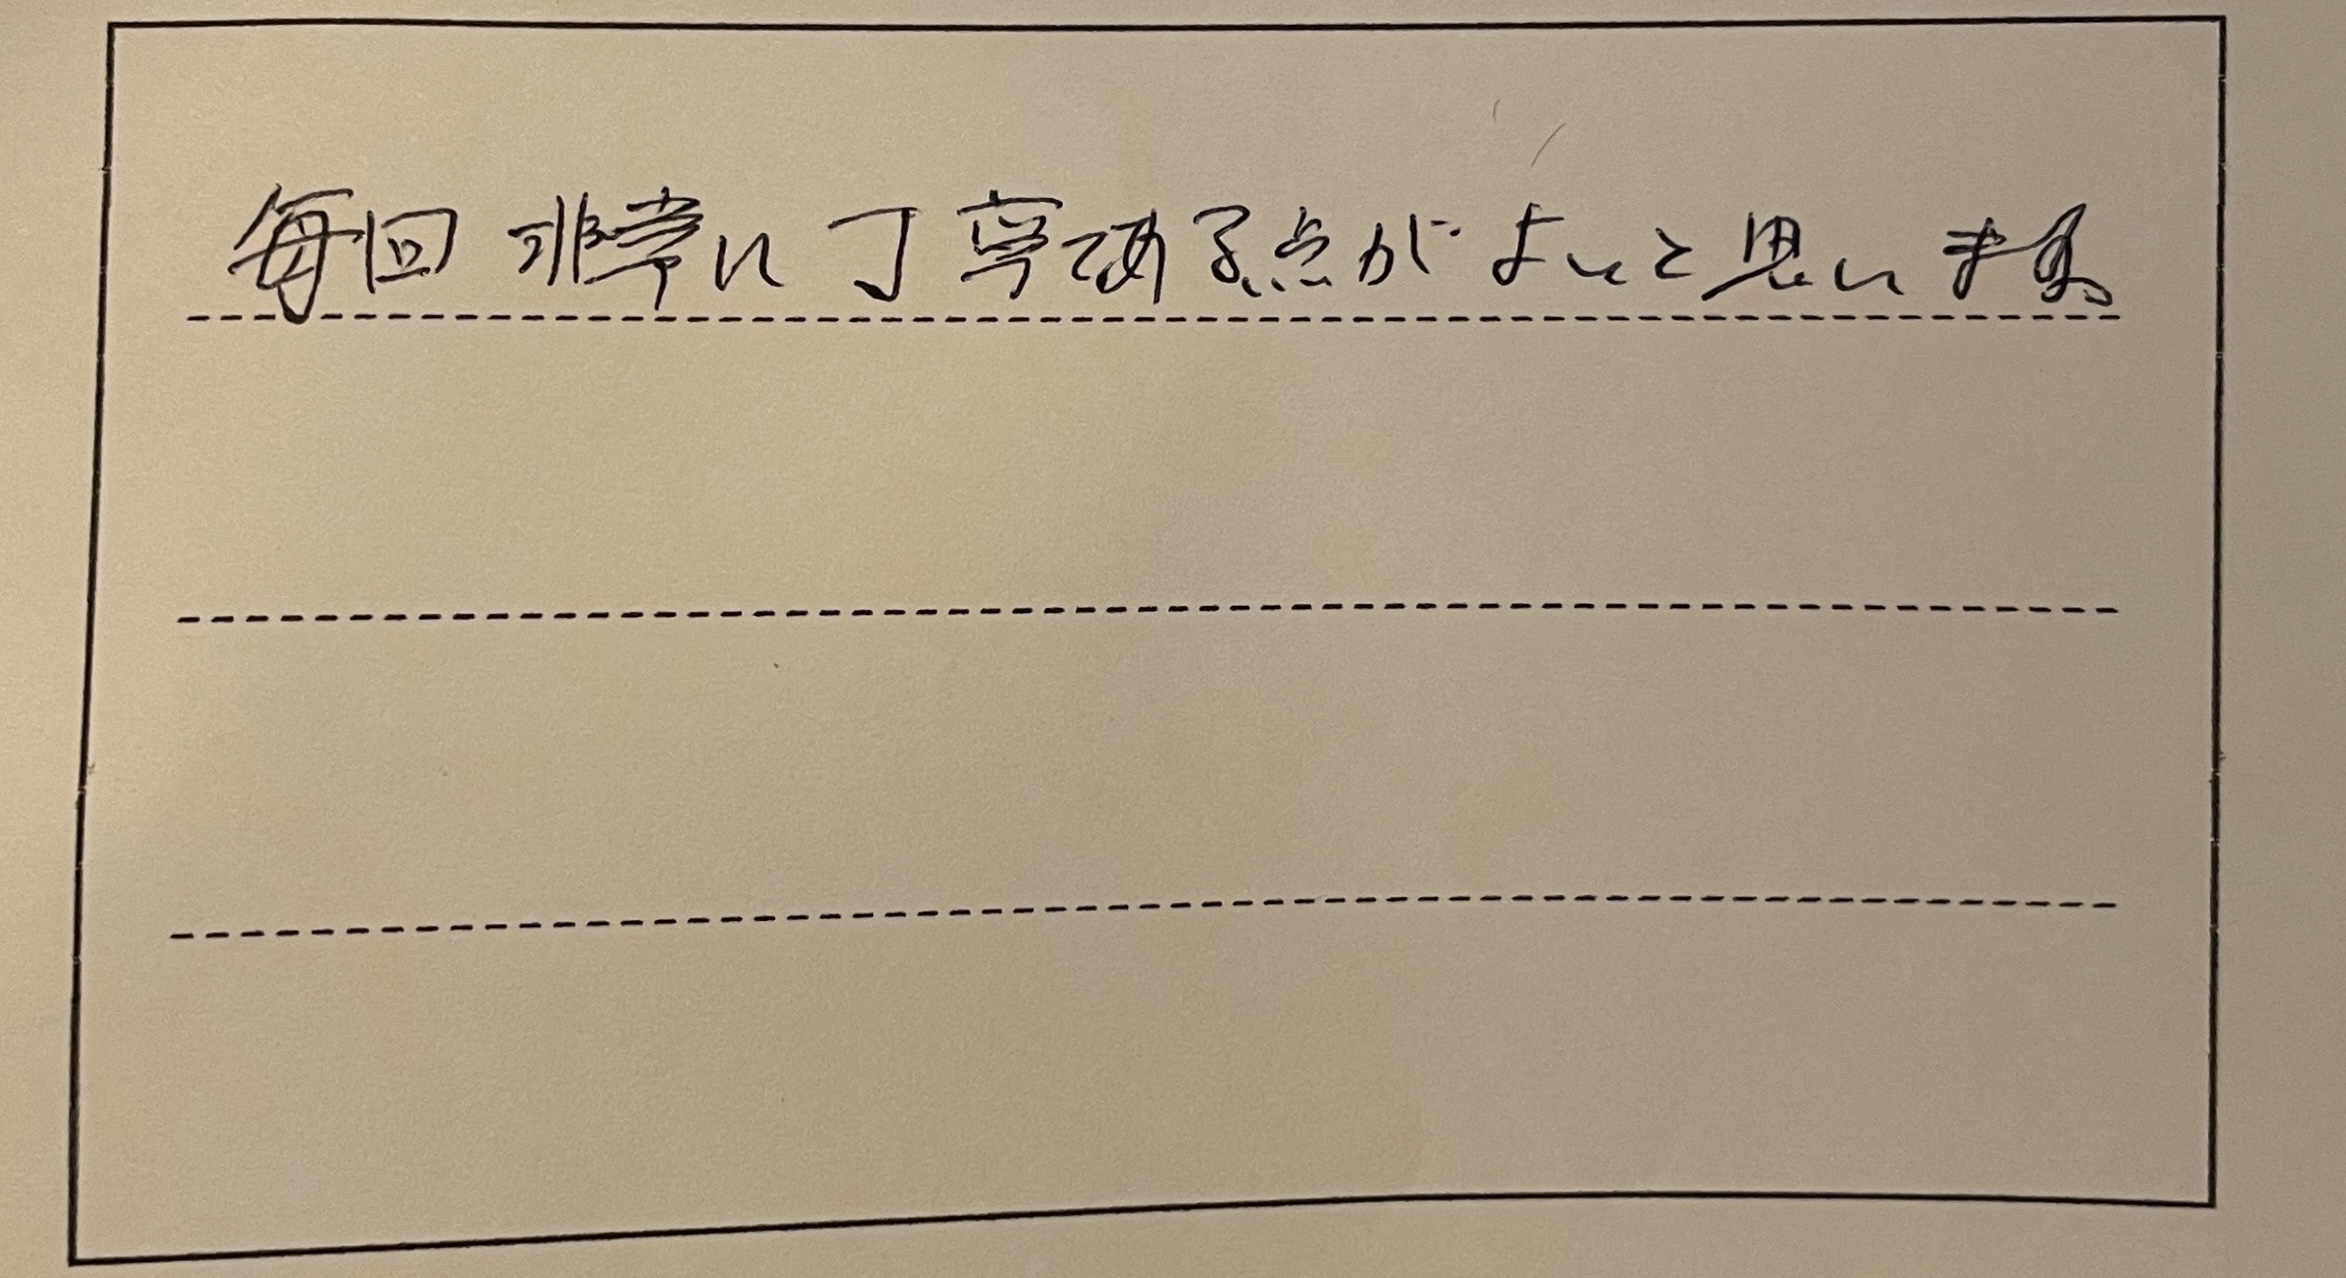 毎回 非常に丁寧である点がよいと思います。